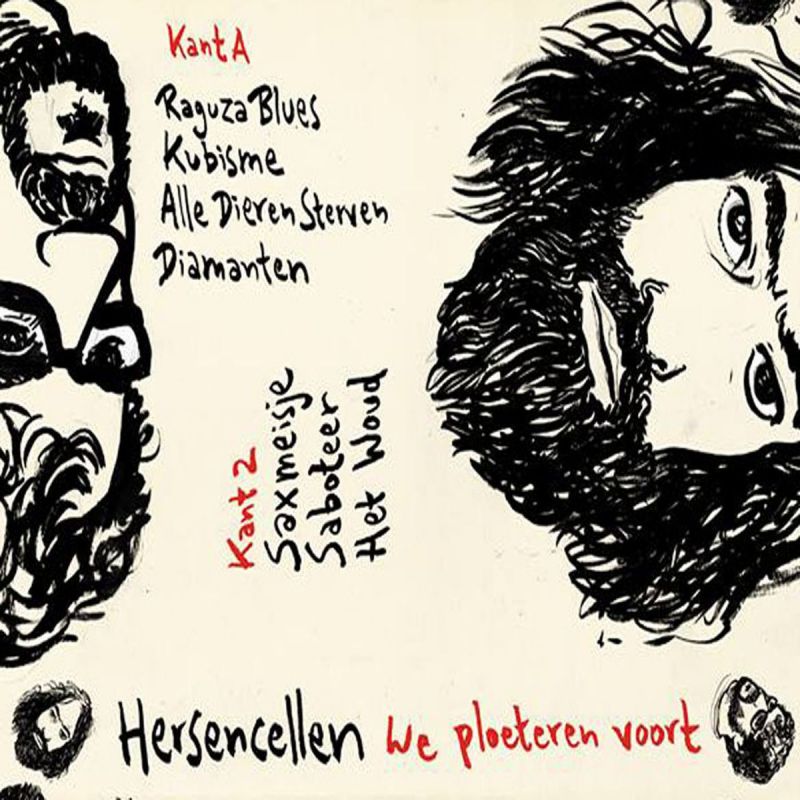 Kant A
Raguza Blues
Kubisme
Alle Dieren Sterven
Diamanten
Kant 2
Saxmeisje
Saboteer
Het Woud
Hersencellen We ploeteren voort